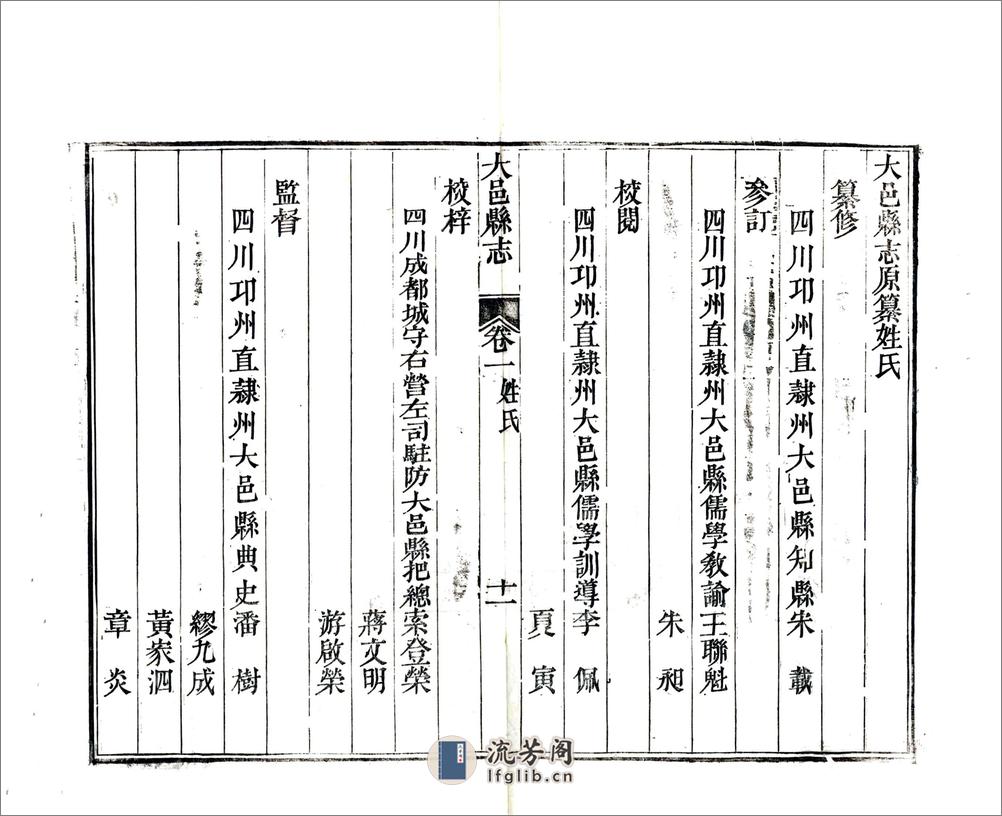 大邑縣志原纂姓氏
纂修
四川邛州直隸州大邑縣知縣宋 載
參訂
四川邛州直隸州大邑縣儒學教諭王聯魁
朱 昶
校閱
四川邛州直隸州大邑縣儒學訓導李 佩
夏 寅
大邑縣志 卷一 姓氏 十一
校梓
四川成都城守右營左司駐防大邑縣把總索登榮
蔣文明
游啟榮
監督
四川邛州直隸州大邑縣典史潘 樹
繆九成
黃家泗
章 炎
流芳阁
lfglib.cn